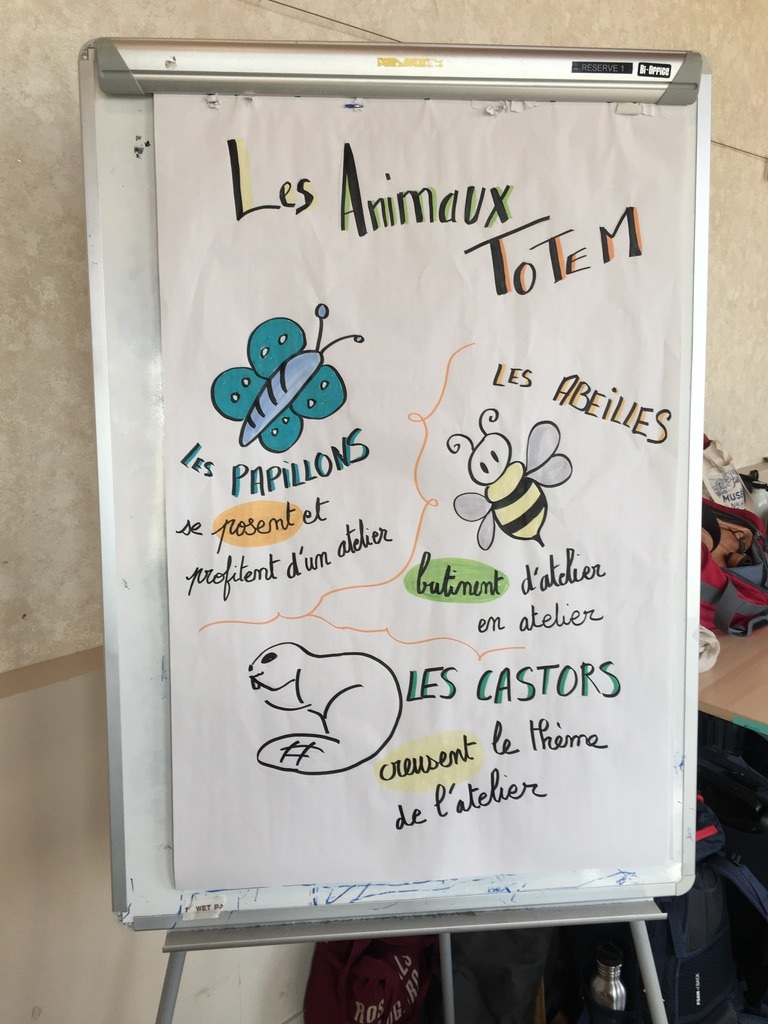 RESERVE 1
Bi-Office
Les Animaux
TOTEM
LES PAPILLONS
se posent et
profitent d'un atelier
LES ABEILLES
butinent d'atelier
en atelier
LES CASTORS
creusent le thème
de l'atelier
MUSE
WET PA